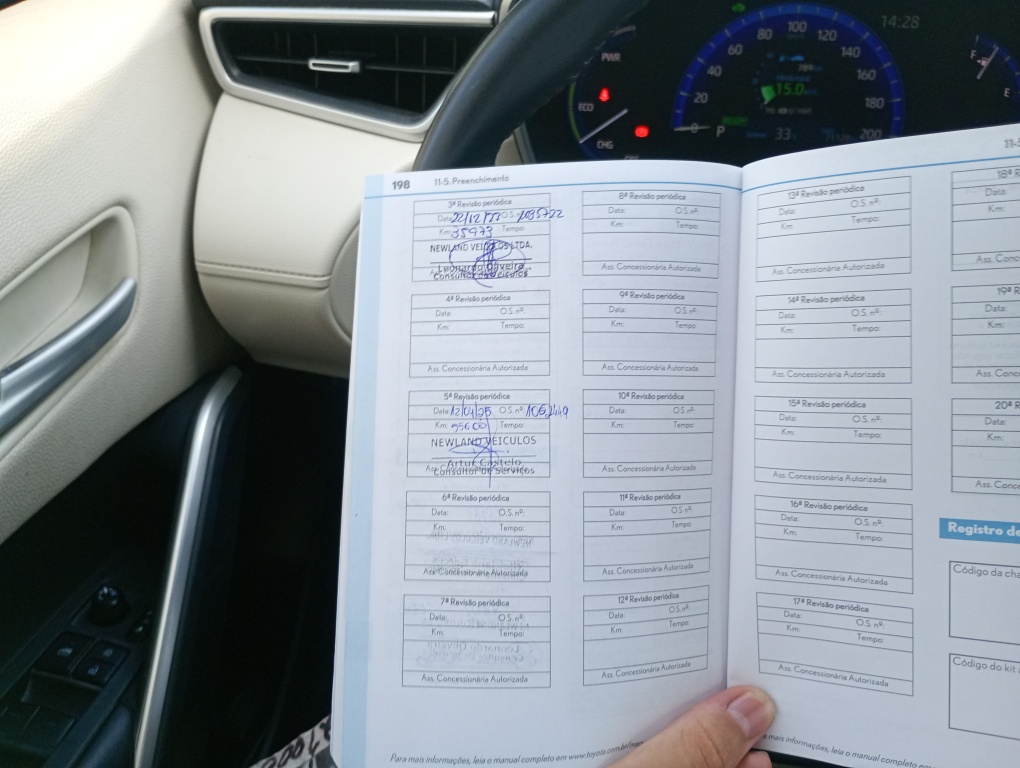 14:28
PWR
ECO
CHG
0
20
40
60
80
100
120
140
160
180
200
15.0
P
33
F
E
198
11-5. Preenchimento
3ª Revisão periódica
Data: 22/12/22 O.S. nº:
Km: 35973 Tempo:
NEWLAND VEICULOS LTDA.
Leonardo Oliveira
Consultor de Veiculos
4ª Revisão periódica
Data: O.S. nº:
Km: Tempo:
Ass. Concessionária Autorizada
5ª Revisão periódica
Data: O.S. nº:
Km: Tempo:
NEWLAND VEICULOS
Artur Castelo
Consultor de Serviços
6ª Revisão periódica
Data: O.S. nº:
Km: Tempo:
Ass. Concessionária Autorizada
7ª Revisão periódica
Data: O.S. nº:
Km: Tempo:
Ass. Concessionária Autorizada
8ª Revisão periódica
Data: O.S. nº:
Km: Tempo:
Ass. Concessionária Autorizada
9ª Revisão periódica
Data: O.S. nº:
Km: Tempo:
Ass. Concessionária Autorizada
10ª Revisão periódica
Data: O.S. nº:
Km: Tempo:
Ass. Concessionária Autorizada
11ª Revisão periódica
Data: O.S. nº:
Km: Tempo:
Ass. Concessionária Autorizada
12ª Revisão periódica
Data: O.S. nº:
Km: Tempo:
Ass. Concessionária Autorizada
Para mais informações, leia o manual completo em www.toyota.com.br/
13ª Revisão periódica
Data: O.S. nº:
Km: Tempo:
Ass. Concessionária Autorizada
14ª Revisão periódica
Data: O.S. nº:
Km: Tempo:
Ass. Concessionária Autorizada
15ª Revisão periódica
Data: O.S. nº:
Km: Tempo:
Ass. Concessionária Autorizada
16ª Revisão periódica
Data: O.S. nº:
Km: Tempo:
Ass. Concessionária Autorizada
17ª Revisão periódica
Data: O.S. nº:
Km: Tempo:
Ass. Concessionária Autorizada
mais informações, leia o manual completo em
11-5
18ª R
Data:
Km:
Ass. Conce
19ª R
Data:
Km:
Ass. Conc
20ª R
Data:
Km:
Ass. Conce
Registro de
Código da cha
Código do kit